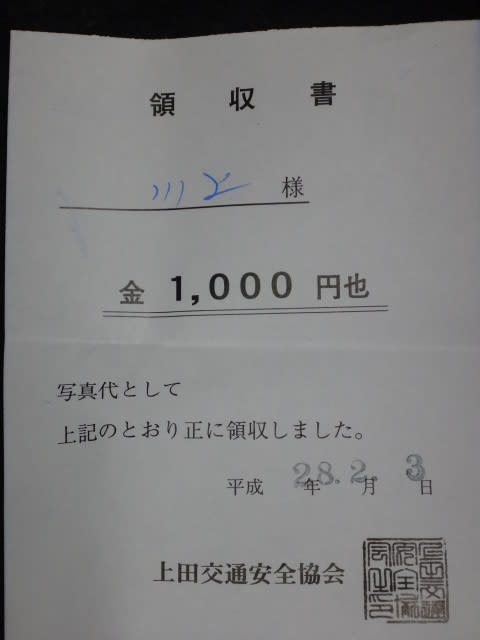 領収書
川上 様
金 1,000 円也
写真代として
上記のとおり正に領収しました。
平成 28年 2月 3日
上田交通安全協会